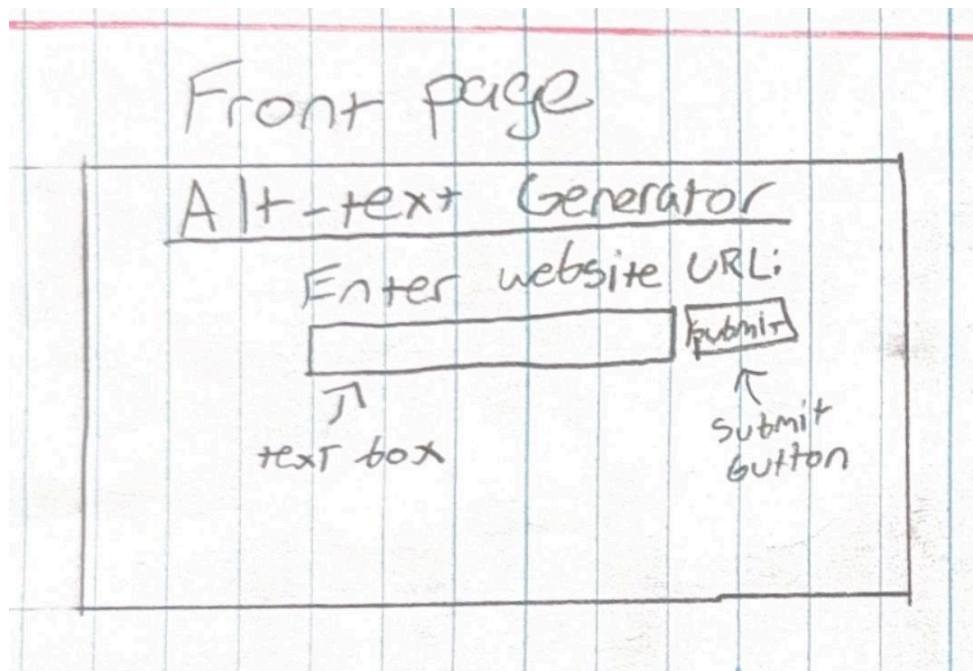 Front page
Alt-text Generator
Enter website URL:
submit
text box
submit
button